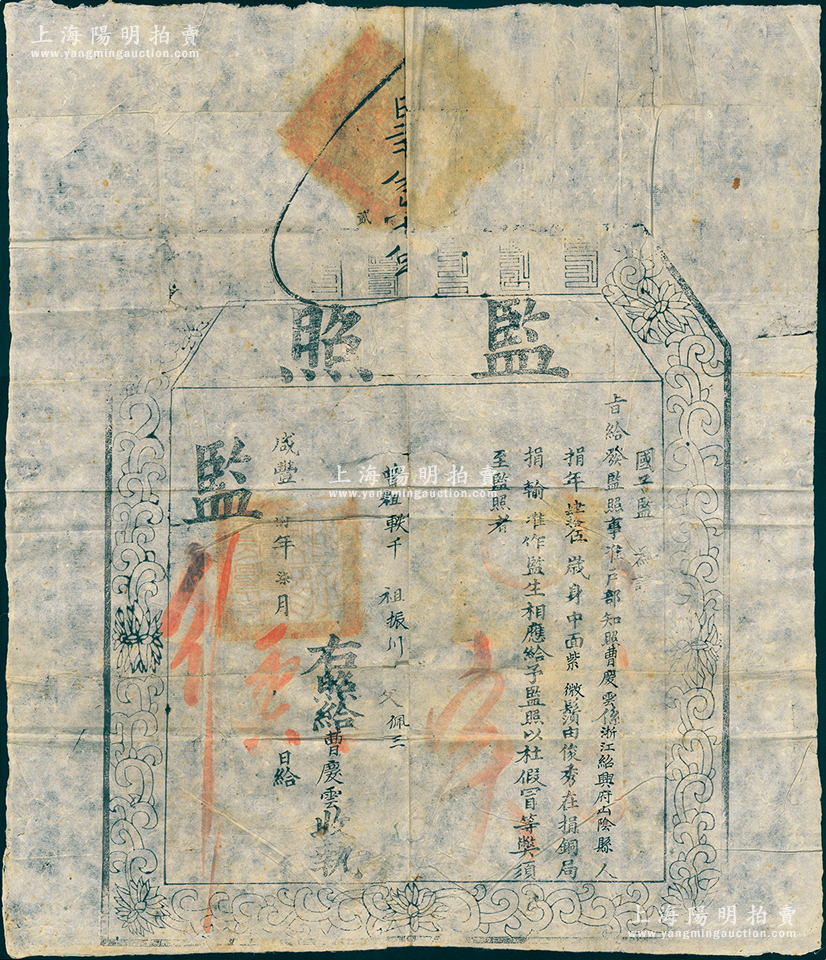 上海陽明拍賣
www.yangmingauction.com
上海陽明拍賣
www.yangmingauction.com
貳
監照
國子監 為
旨給發監照事准戶部知照曹慶雲係浙江紹興府山陰縣人
捐年肆拾伍歲身中面紫微鬚由俊秀在捐銅局
捐輸准作監生相應給予監照以杜假冒等獘須
至監照者
曾祖軼千 祖振川 父佩三
右照給曹慶雲收執
咸豐 年柒月 日給
監
上海陽明拍賣
www.yangmingauction.com
上海陽明拍賣
www.yangmingauction.com